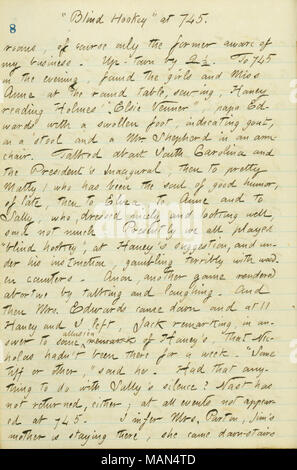 8
"Blind Hookey" at 745.
rooms, of course only the former aware of
my business. Up-town by 2½. To 745
in the evening, found the girls and Miss
Anne at the round table, sewing, Haney
reading Holmes' "Elsie Venner", papa Ed-
wards with a swollen foot, indicating gout,
on a stool and a Mr Shepherd in an arm
chair. Talked about South Carolina and
the President's Inaugural, then to pretty
Matty, who has been the soul of good humor,
of late, then to Eliza, to Anne and to
Sally, who, dressed nicely and looking well,
said not much. Presently we all played
"blind hookey", at Haney's suggestion, and un-
der his instruction, gambling terribly with wood-
en counters. Anon, another game rendered
abortive by talking and laughing. And
then Mrs. Edwards came down and at 11
Haney and I left, Jack remarking, in an-
swer to some allusion of Haney's, that Nic-
holas hadn't been there for a week. "Some
tiff or other," said he. Had that any-
thing to do with Sally's silence? Nast has
not returned, either, at all events not appear-
ed at 745. I infer Mrs. Parton, Jim's
mother is staying there, she came down-stairs
alamy
Image ID: MAN4TD
www.alamy.com